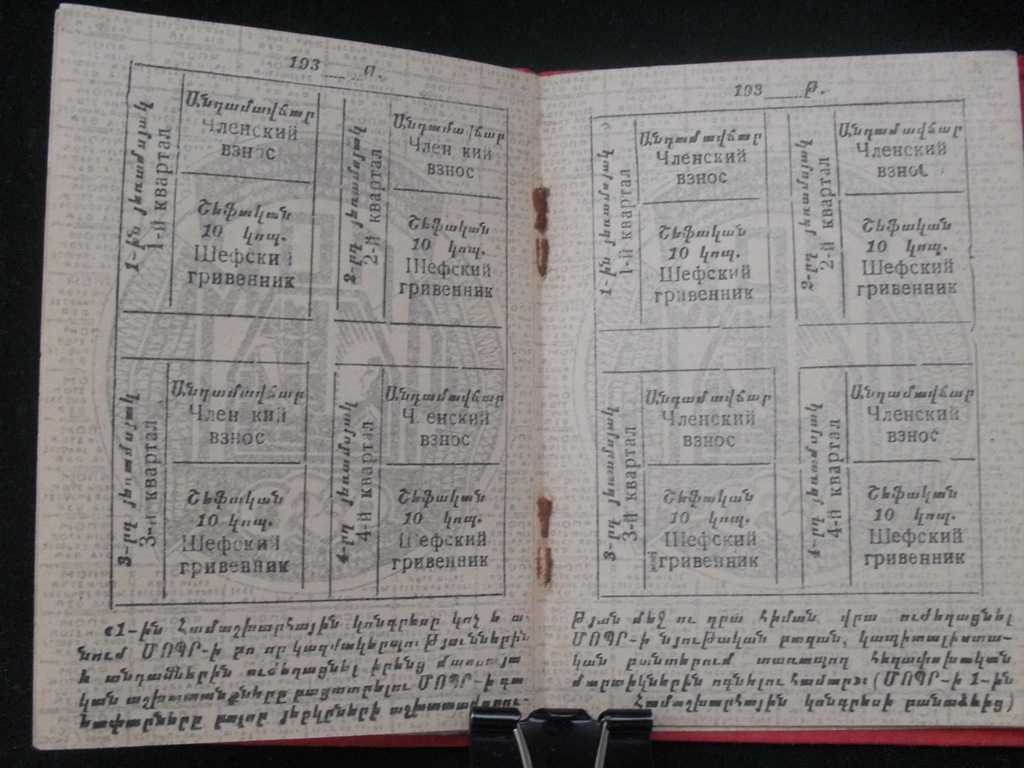 193 թ.
1-ին յեռամսյակ
1-й квартал
Անդամավճար
Членский
взнос
Շեֆական
10 կոպ.
Шефский
гривенник
2-րդ յեռամսյակ
2-й квартал
Անդամավճար
Членский
взнос
Շեֆական
10 կոպ.
Шефский
гривенник
3-րդ յեռամսյակ
3-й квартал
Անդամավճար
Членский
взнос
Շեֆական
10 կոպ.
Шефский
гривенник
4-րդ յեռամսյակ
4-й квартал
Անդամավճար
Членский
взнос
Շեֆական
10 կոպ.
Шефский
гривенник
«1-ին Համաշխարհային կոնգրեսը կոչ է ա
նում ՄՈՊՐ-ի կազմակերպու թյուններին
և անդամներին ուժեղացնել իրենց մասսայա
կան աշխատանքները բացատրելու ՄՈՊՐ-ի գա
ղափարները բալոր յերկրների աշխատավորու-
193 թ.
1-ին յեռամսյակ
1-й квартал
Անդամավճար
Членский
взнос
Շեֆական
10 կոպ.
Шефский
гривенник
2-րդ յեռամսյակ
2-й квартал
Անդամավճար
Членский
взнос
Շեֆական
10 կոպ.
Шефский
гривенник
3-րդ յեռամսյակ
3-й квартал
Անդամավճար
Членский
взнос
Շեֆական
10 կոպ.
Шефский
гривенник
4-րդ յեռամսյակ
4-й квартал
Անդամավճար
Членский
взнос
Շեֆական
10 կոպ.
Шефский
гривенник
թյան մեջ ու դրա հիման վրա ուժեղացնել
ՄՈՊՐ-ի նյութական բազան, կապիտալիստա-
կան բանտերում տառապող հեղափոխական
մարտիկներին ոգնելու համար» (ՄՈՊՐ-ի 1-ին
Համաշխարհային կոնգրեսի բանաձևից)